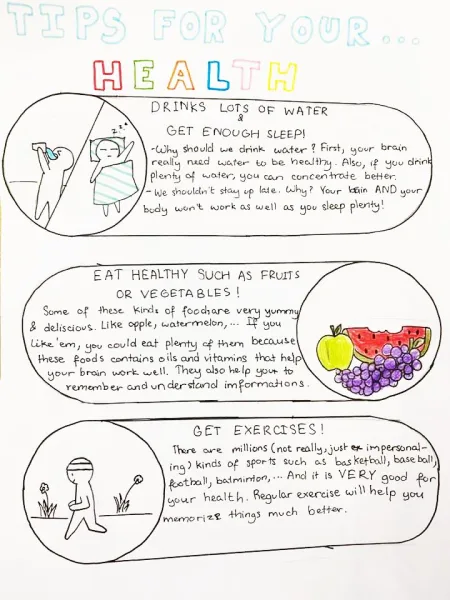 TIPS FOR YOUR...
HEALTH
DRINKS LOTS OF WATER
&
GET ENOUGH SLEEP!
zzz
-Why should we drink water? First, your brain
really need water to be healthy. Also, if you drink
plenty of water, you can concentrate better.
- We shouldn't stay up late. Why? Your brain AND your
body won't work as well as you sleep plenty!
EAT HEALTHY SUCH AS FRUITS
OR VEGETABLES!
Some of these kinds of food are very yummy
& deliscious. Like apple, watermelon,... If you
like 'em, you could eat plenty of them because
these foods contains oils and vitamins that help
your brain work well. They also help your to
remember and understand imformations.
GET EXERCISES!
There are millions (not really, just impersonal-
ing) kinds of sports such as basketball, baseball,
football, badminton,... And it is VERY good for
your health. Regular exercise will help you
memorize things much better.